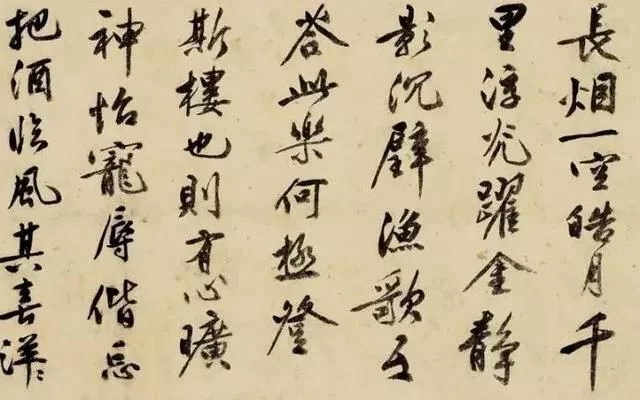 長烟一空皓月千
里浮光躍金靜
影沉璧漁歌互
答此樂何極登
斯樓也則有心曠
神怡寵辱偕忘
把酒臨風其喜洋〻